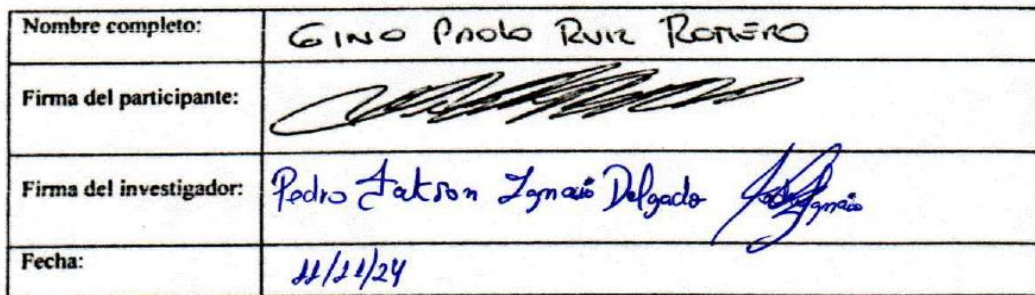 Nombre completo: GINO PAOLO RUIZ ROMERO
Firma del participante:
Firma del investigador: Pedro Jakson Ignacio Delgado
Fecha: 11/11/24